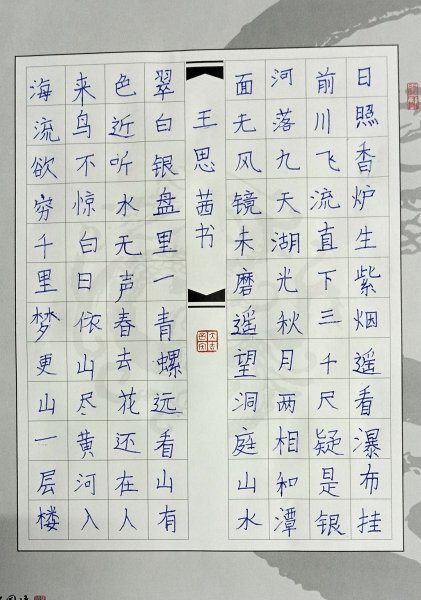 日照香炉生紫烟遥看瀑布挂
前川飞流直下三千尺疑是银
河落九天湖光秋月两相和潭
面无风镜未磨遥望洞庭山水
王思茜书
翠白银盘里一青螺远看山有
色近听水无声春去花还在人
来鸟不惊白日依山尽黄河入
海流欲穷千里梦更山一层楼